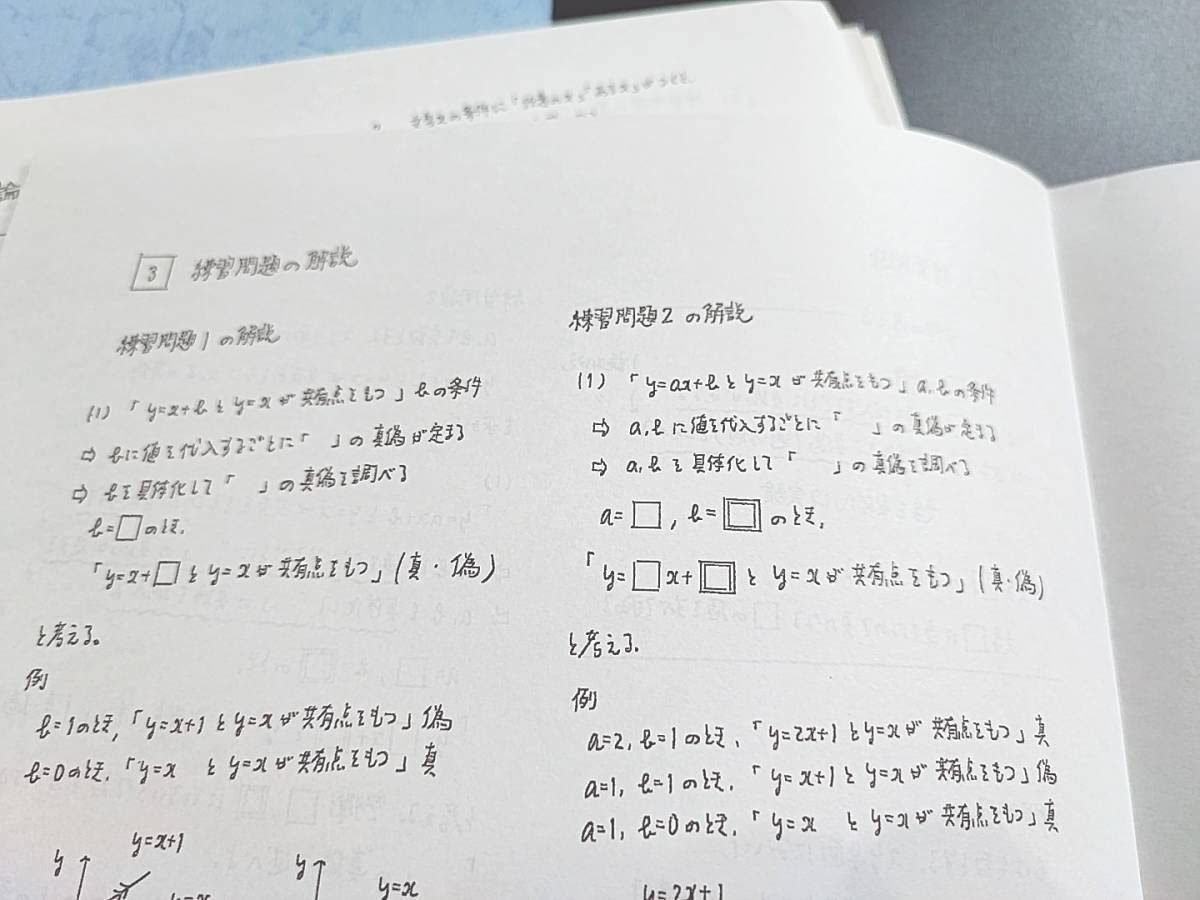 論
3 練習問題の解説
練習問題1の解説
(1) 「y=x+bとy=xが共有点をもつ」bの条件
⇨ bに値を代入するごとに「　」の真偽が定まる
⇨ bを具体化して「　」の真偽を調べる
b=□のとき,
「y=x+□とy=xが共有点をもつ」(真・偽)
と考える。
例
b=1のとき,「y=x+1とy=xが共有点をもつ」偽
b=0のとき,「y=x　とy=xが共有点をもつ」真
y
y=x+1
y=x
y
y=x
練習問題2の解説
(1) 「y=ax+bとy=xが共有点をもつ」a,bの条件
⇨ a,bに値を代入するごとに「　」の真偽が定まる
⇨ a,bを具体化して「　」の真偽を調べる
a=□, b=回のとき,
「y=□x+回とy=xが共有点をもつ」(真・偽)
と考える。
例
a=2, b=1のとき,「y=2x+1とy=xが共有点をもつ」真
a=1, b=1のとき,「y=x+1とy=xが共有点をもつ」偽
a=1, b=0のとき,「y=x　とy=xが共有点をもつ」真
y=2x+1